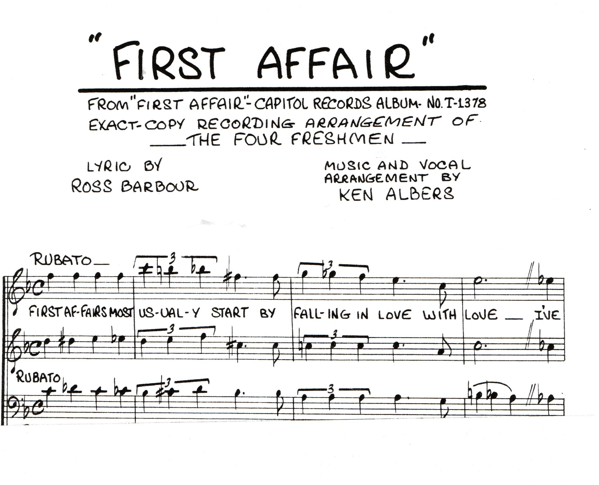 "FIRST AFFAIR"
FROM "FIRST AFFAIR"- CAPITOL RECORDS ALBUM- NO. T-1378
EXACT-COPY RECORDING ARRANGEMENT OF
THE FOUR FRESHMEN
LYRIC BY
ROSS BARBOUR
MUSIC AND VOCAL
ARRANGEMENT BY
KEN ALBERS
RUBATO
3 3
FIRST AF-FAIRS MOST US-UAL-Y START BY FALL-ING IN LOVE WITH LOVE — I'VE
3 3
RUBATO
3 3